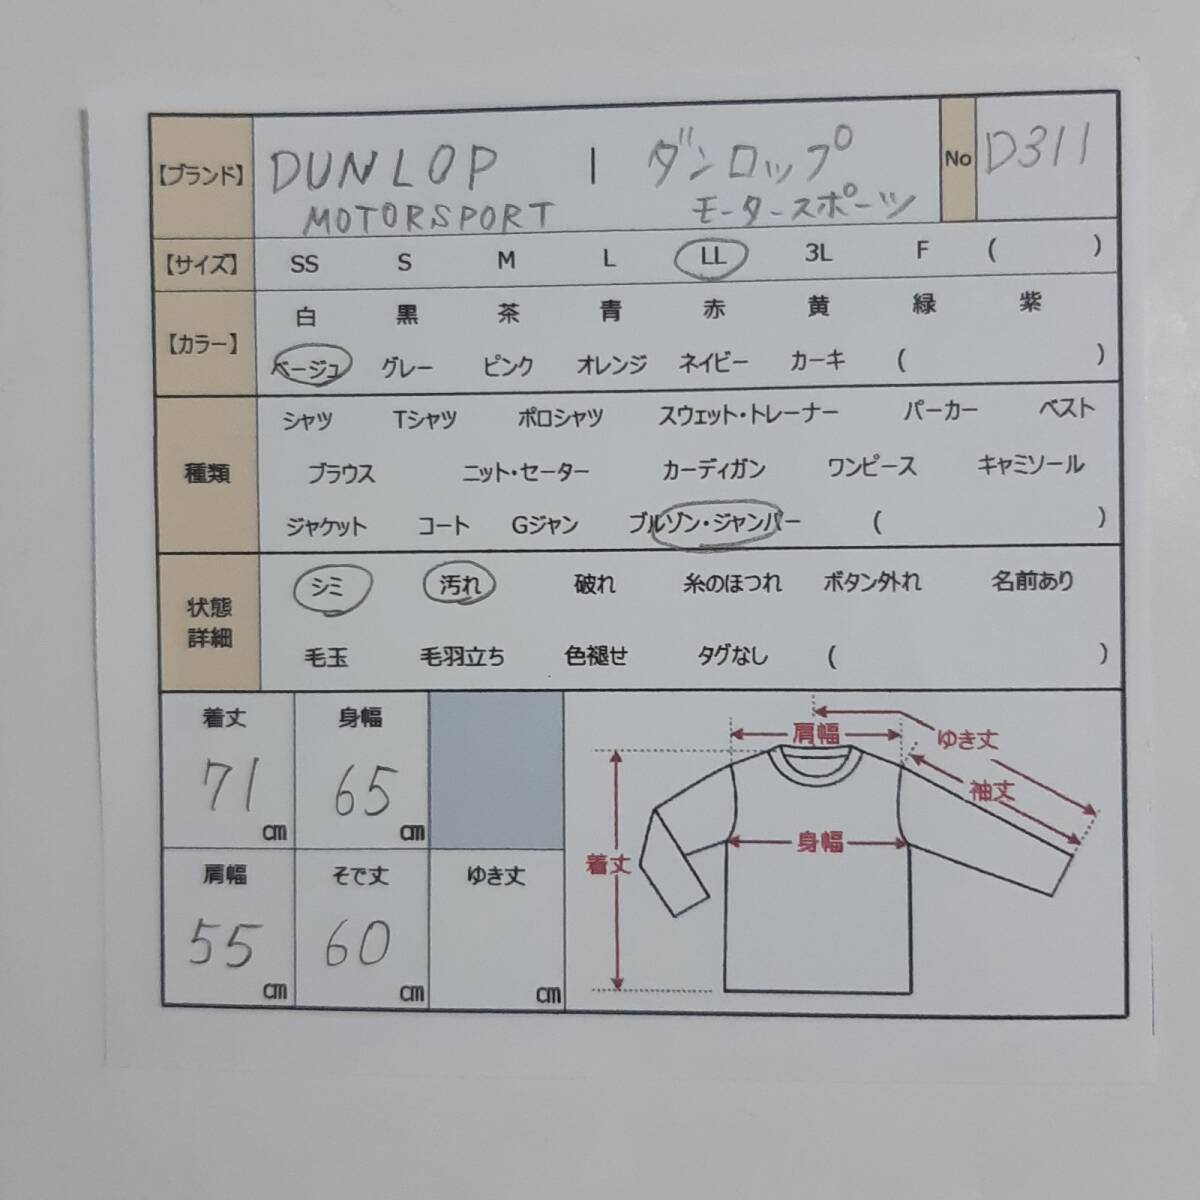 【ブランド】 DUNLOP | ダンロップ No D311
MOTORSPORT モータースポーツ
【サイズ】 SS S M L LL 3L F ( )
【カラー】 白 黒 茶 青 赤 黄 緑 紫
ベージュ グレー ピンク オレンジ ネイビー カーキ ( )
種類 シャツ Tシャツ ポロシャツ スウェット・トレーナー パーカー ベスト
ブラウス ニット・セーター カーディガン ワンピース キャミソール
ジャケット コート Gジャン ブルゾン・ジャンパー ( )
状態
詳細
シミ 汚れ 破れ 糸のほつれ ボタン外れ 名前あり
毛玉 毛羽立ち 色褪せ タグなし ( )
着丈 身幅
71 cm 65 cm
肩幅 そで丈 ゆき丈
55 cm 60 cm cm
肩幅
ゆき丈
袖丈
身幅
着丈